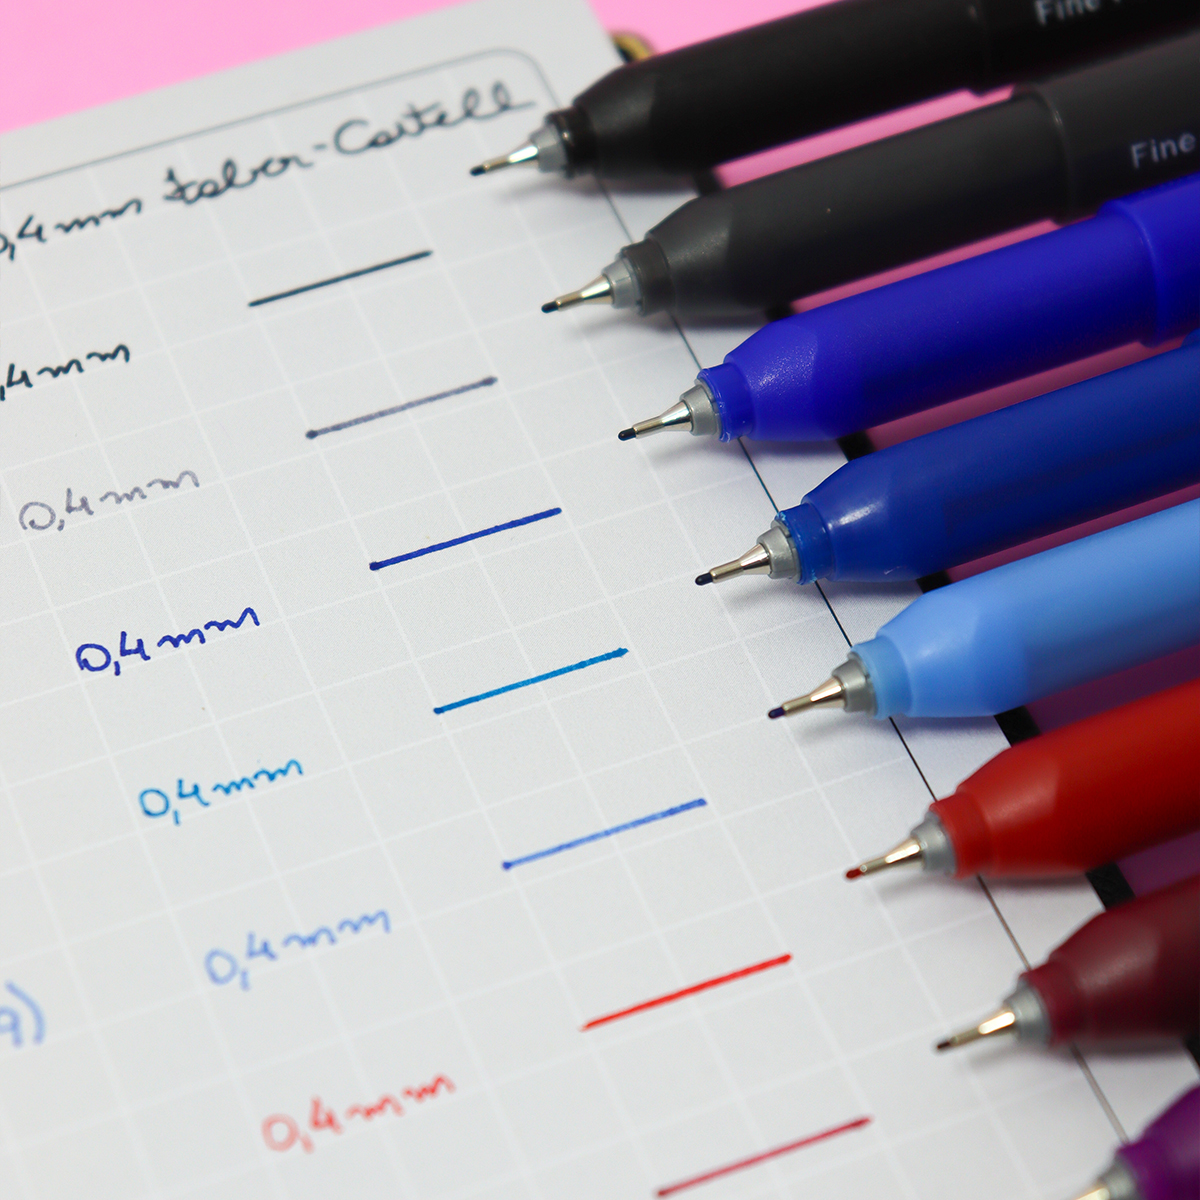 0,4mm Faber-Castell
Fine
Fine
0,4mm
0,4mm
0,4mm
0,4mm
0,4mm
9)
0,4mm